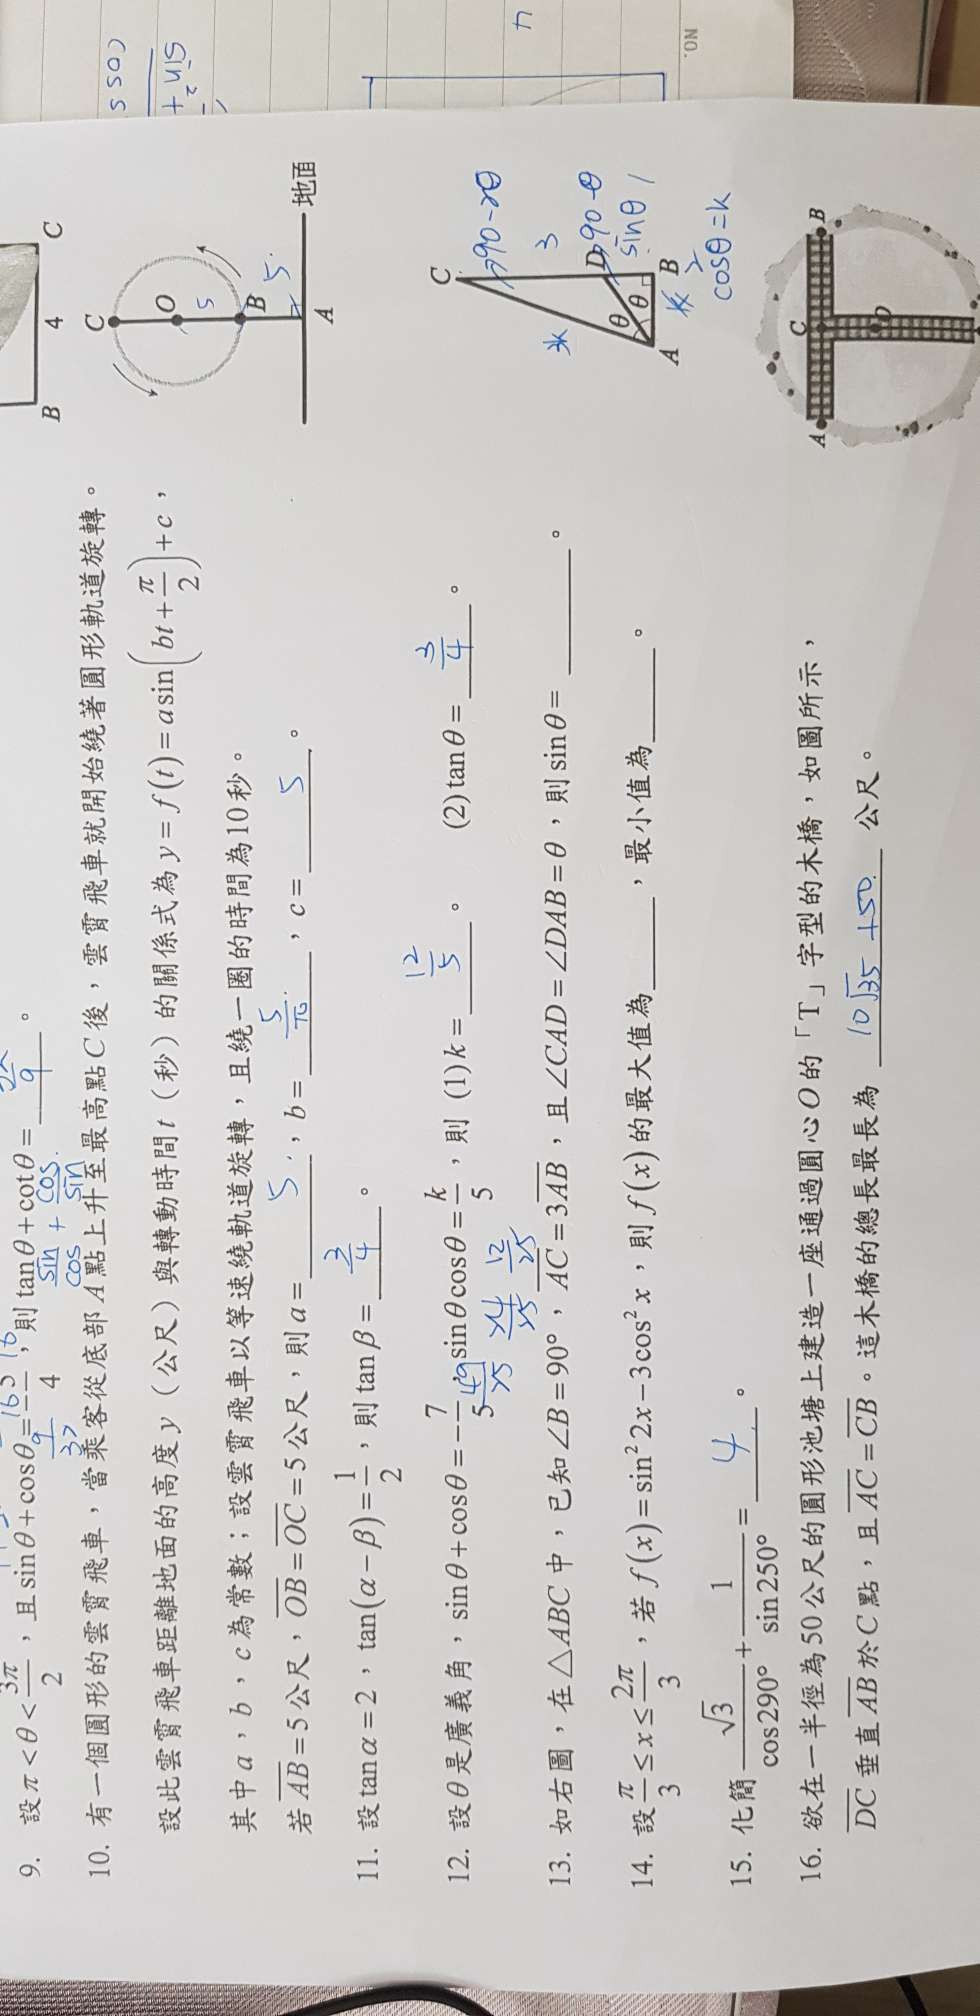 9. 設 π < θ < 3π/2，且 sinθ + cosθ = 5/4，則 tanθ + cotθ = 。
sin/cos + cos/sin
10. 有一個圓形的雲霄飛車，當乘客從底部 A 點上升至最高點 C 後，雲霄飛車就開始繞著圓形軌道旋轉。
設此雲霄飛車距離地面的高度 y（公尺）與轉動時間 t（秒）的關係式為 y = f(t) = a sin(bt + π/2) + c，
其中 a，b，c 為常數；設雲霄飛車以等速繞軌道旋轉，且繞一圈的時間為 10 秒。
若 AB = 5 公尺，OB = OC = 5 公尺，則 a = 5，b = 5/π，c = 5。
11. 設 tanα = 2，tan(α − β) = 1/2，則 tanβ = 3/4。
12. 設 θ 是廣義角，sinθ + cosθ = −7/5，sinθcosθ = k/5，則 (1) k = 12/5。 (2) tanθ = 3/4。
49/25 24/25 12/25
13. 如右圖，在 △ABC 中，已知 ∠B = 90°，AC = 3AB，且 ∠CAD = ∠DAB = θ，則 sinθ = 。
14. 設 π/3 ≤ x ≤ 2π/3，若 f(x) = sin² 2x − 3cos² x，則 f(x) 的最大值為 ，最小值為 。
15. 化簡 √3/cos290° + 1/sin250° = 4。
16. 欲在一半徑為 50 公尺的圓形池塘上建造一座通過圓心 O 的「T」字型的木橋，如圖所示，
DC 垂直 AB 於 C 點，且 AC = CB。這木橋的總長最長為 10√35 + 50 公尺。
B 4 C
C
O
5
B
5
A
地面
C
90-2θ
3
D
90-θ
sinθ
θ
θ
A
B
cosθ = k
A
C
B
NO.
4